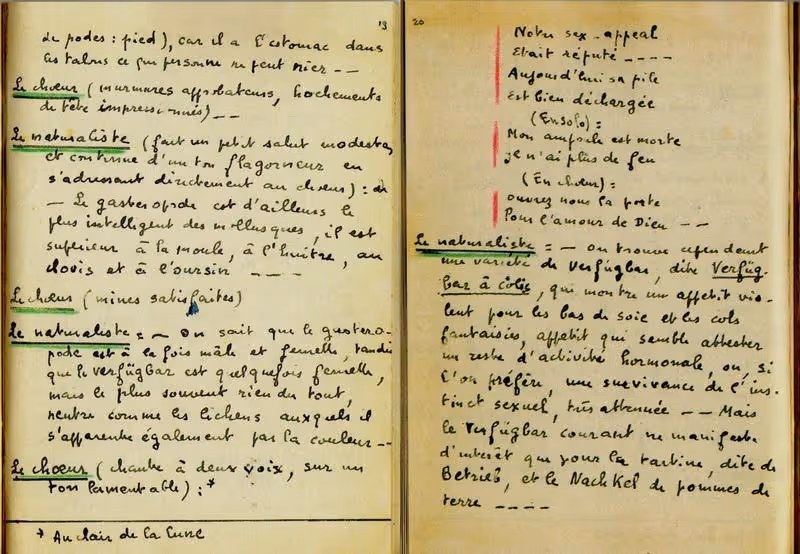 13
de podes : pied), car il a l'estomac dans
les talons ce que personne ne peut nier --
Le chœur (murmures approbateurs, hochements
de tête impressionnés) --
Le naturaliste (fait un petit salut modeste,
et continue d'un ton flagorneur en
s'adressant directement au chœur) :
— Le gasteropode est d'ailleurs le
plus intelligent des mollusques, il est
supérieur à la moule, à l'huître, au
clovis et à l'oursin ----
Le chœur (mines satisfaites)
Le naturaliste : — On sait que le gastero-
pode est à la fois mâle et femelle, tandis
que le verfügbar est quelquefois femelle,
mais le plus souvent rien du tout,
neutre comme les lichens auxquels il
s'apparente également par la couleur --
Le chœur (chante à deux voix, sur un
ton lamentable) : *
* Au clair de la lune
20
Notre sex-appeal
Etait réputé ----
Aujourd'hui sa pile
Est bien déchargée
(En solo) :
Mon ampoule est morte
je n'ai plus de feu
(En chœur) :
ouvrez nous la porte
Pour l'amour de Dieu --
Le naturaliste : — on trouve cependant
une variété de verfügbar, dite Verfüg-
bar à colis, qui montre un appétit vio-
lent pour les bas de soie et les cols
fantaisies, appétit qui semble attester
un reste d'activité hormonale, ou, si
l'on préfère, une survivance de l'ins-
tinct sexuel, très attenuée -- Mais
le Verfügbar courant ne manifeste
d'intérêt que pour la tartine, dite de
Betrieb, et le Nachkel de pommes de
terre ----